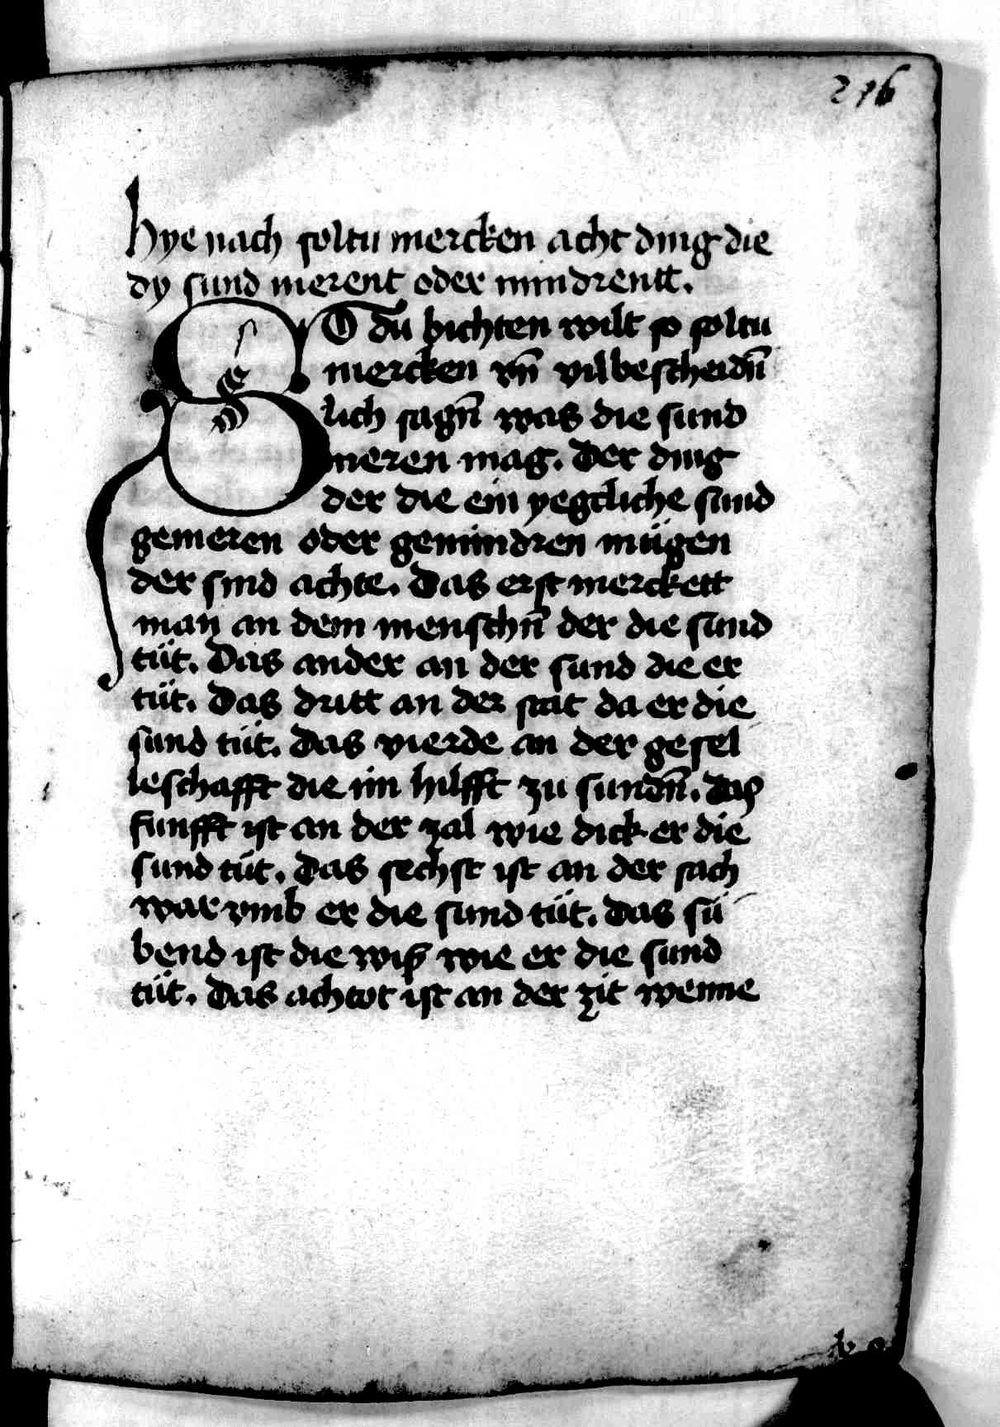 216
hye nach soltu mercken acht ding die
dy sund merent oder mindrentt.
SO du bichten wilt so soltu
mercken vn̄ vilbescheidn̄
lich sagn̄ was die sund
meren mag. Der ding
der die ein yegcliche sund
gemeren oder gemindren mügen
der sind achte. Das erst merckett
man an dem menschn̄ der die sund
tüt. Das ander an der sund die er
tüt. Das dritt an der stat da er die
sund tüt. Das vierde an der gesel
leschafft die im hilfft zu sundn̄. Das
funfft ist an der zal wie dick er die
sund tüt. Das sechst ist an der sach
war vmb er die sund tüt. Das sü
bend ist die wiß wie er die sund
tüt. Das achtot ist an der zit wenne